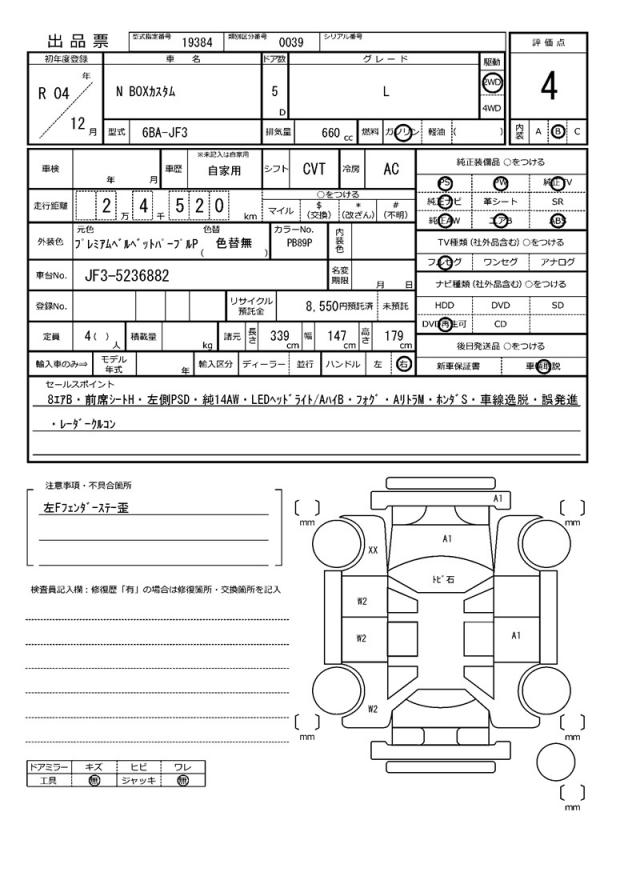 出品票 型式指定番号 19384 類別区分番号 0039 シリアル番号
評価点
初年度登録 車名 ドア数 グレード 駆動
R 04 年 12 月 N BOXカスタム 5 D L 2WD 4WD 4
型式 6BA-JF3 排気量 660 cc 燃料 ガソリン 軽油 ( ) 内装 A B C
車検 年 月 車歴 ※未記入は自家用 自家用 シフト CVT 冷房 AC
走行距離 2 万 4 千 5 2 0 km ○をつける
マイル $(交換) *(改ざん) #(不明)
外装色 元色 プレミアムベルベットパープルP 色替 ( 色替無 ) カラーNo. PB89P 内装色
車台No. JF3-5236882 名変期限 月 日
登録No. リサイクル預託金 8,550円預託済 未預託
定員 4( ) 人 積載量 kg 諸元 長さ 339 cm 幅 147 cm 高さ 179 cm
輸入車のみ⇒ モデル年式 年 輸入区分 ディーラー 並行 ハンドル 左 右
純正装備品 ○をつける
PS PW 純正TV
純正ナビ 革シート SR
純正AW エアB ABS
TV種類(社外品含む)○をつける
フルセグ ワンセグ アナログ
ナビ種類(社外品含む)○をつける
HDD DVD SD
DVD再生可 CD
後日発送品 ○をつける
新車保証書 車輌取説
セールスポイント
8エアB・前席シートH・左側PSD・純14AW・LEDヘッドライト/AハイB・フォグ・AリトラM・ホンダS・車線逸脱・誤発進
・レーダークルコン
注意事項・不具合箇所
左Fフェンダーステー歪
検査員記入欄:修復歴「有」の場合は修復箇所・交換箇所を記入
ドアミラー キズ ヒビ ワレ
工具 無 ジャッキ 無
A1
[ ] mm [ ] mm
XX A1
トビ石
W2
W2 A1
W2
[ ] mm [ ] mm
[ ] mm